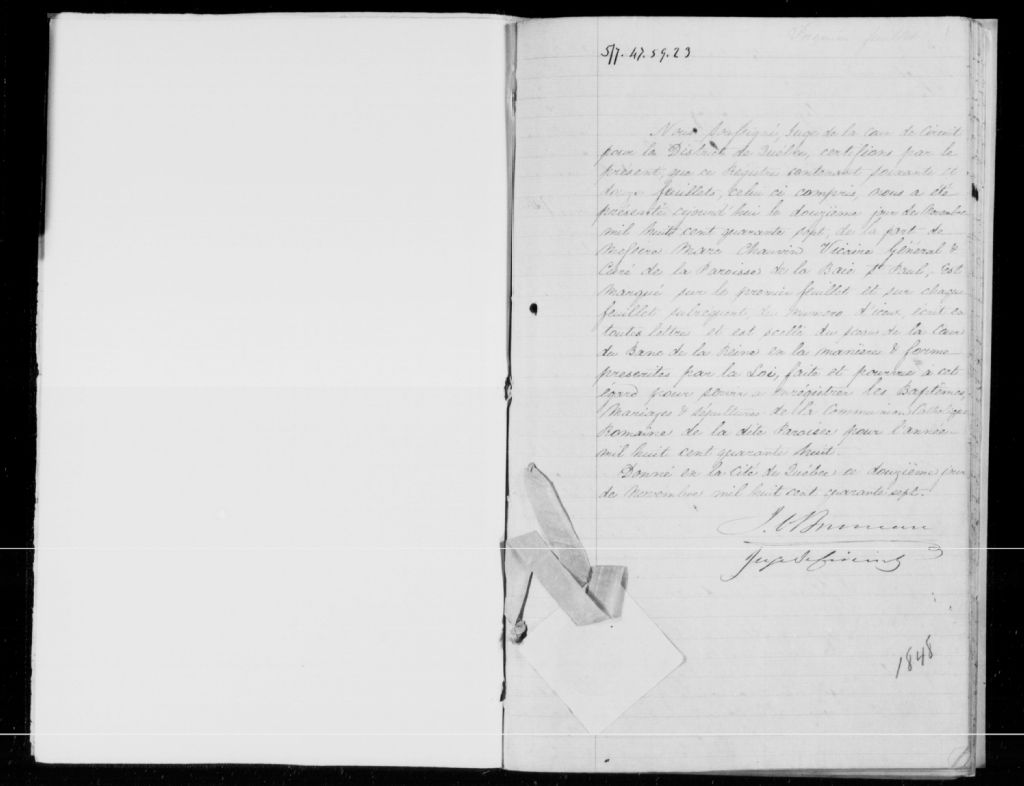 Premier feuillet
5/7.47.59.23
Nous soussigné, Juge de la Cour de Circuit
pour le District de Québec, certifions par le
présent, que ce Régistre contenant soixante et
feuillets, celui ci compris, nous a été
présenté cejourd'hui le douzième jour de Novembre
mil huit cent quarante sept, de la part de
Messire Marc Chauvin Vicaire Général &
Curé de la Paroisse de la Baie St Paul, Est
Marqué sur le premier feuillet et sur chaque
feuillet subsequent, du numero d'iceux, écrit en
toutes lettres et est scellé du sceau de la Cour
du Banc de la Reine en la manière & forme
prescrites par la Loi, faite et pourvue à cet
égard pour servir a enrégistrer les Baptêmes,
Mariages & Sépultures de la Communion Catholique
Romaine de la dite Paroisse pour l'année
mil huit cent quarante huit.
Donné en la Cité de Québec ce douzième jour
de Novembre mil huit cent quarante sept.
Juge de Circuit
1848